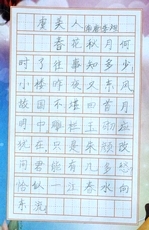 虞美人
春花秋月何
时了往事知多少
小楼昨夜又东风
故国不堪回首月
明中雕栏玉砌应
犹在只是朱颜改
问君能有几多愁
恰似一江春水向
东流